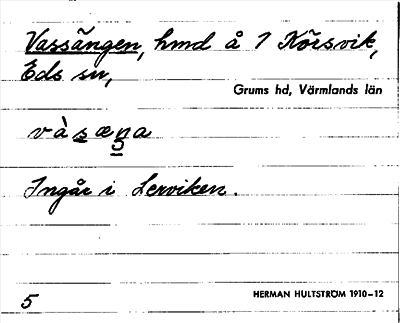 Vassängen, hmd å 1 Körsvik,
Eds sn,
Grums hd, Värmlands län
vàsæŋa
Ingår i Lerviken.
5
HERMAN HULTSTRÖM 1910–12